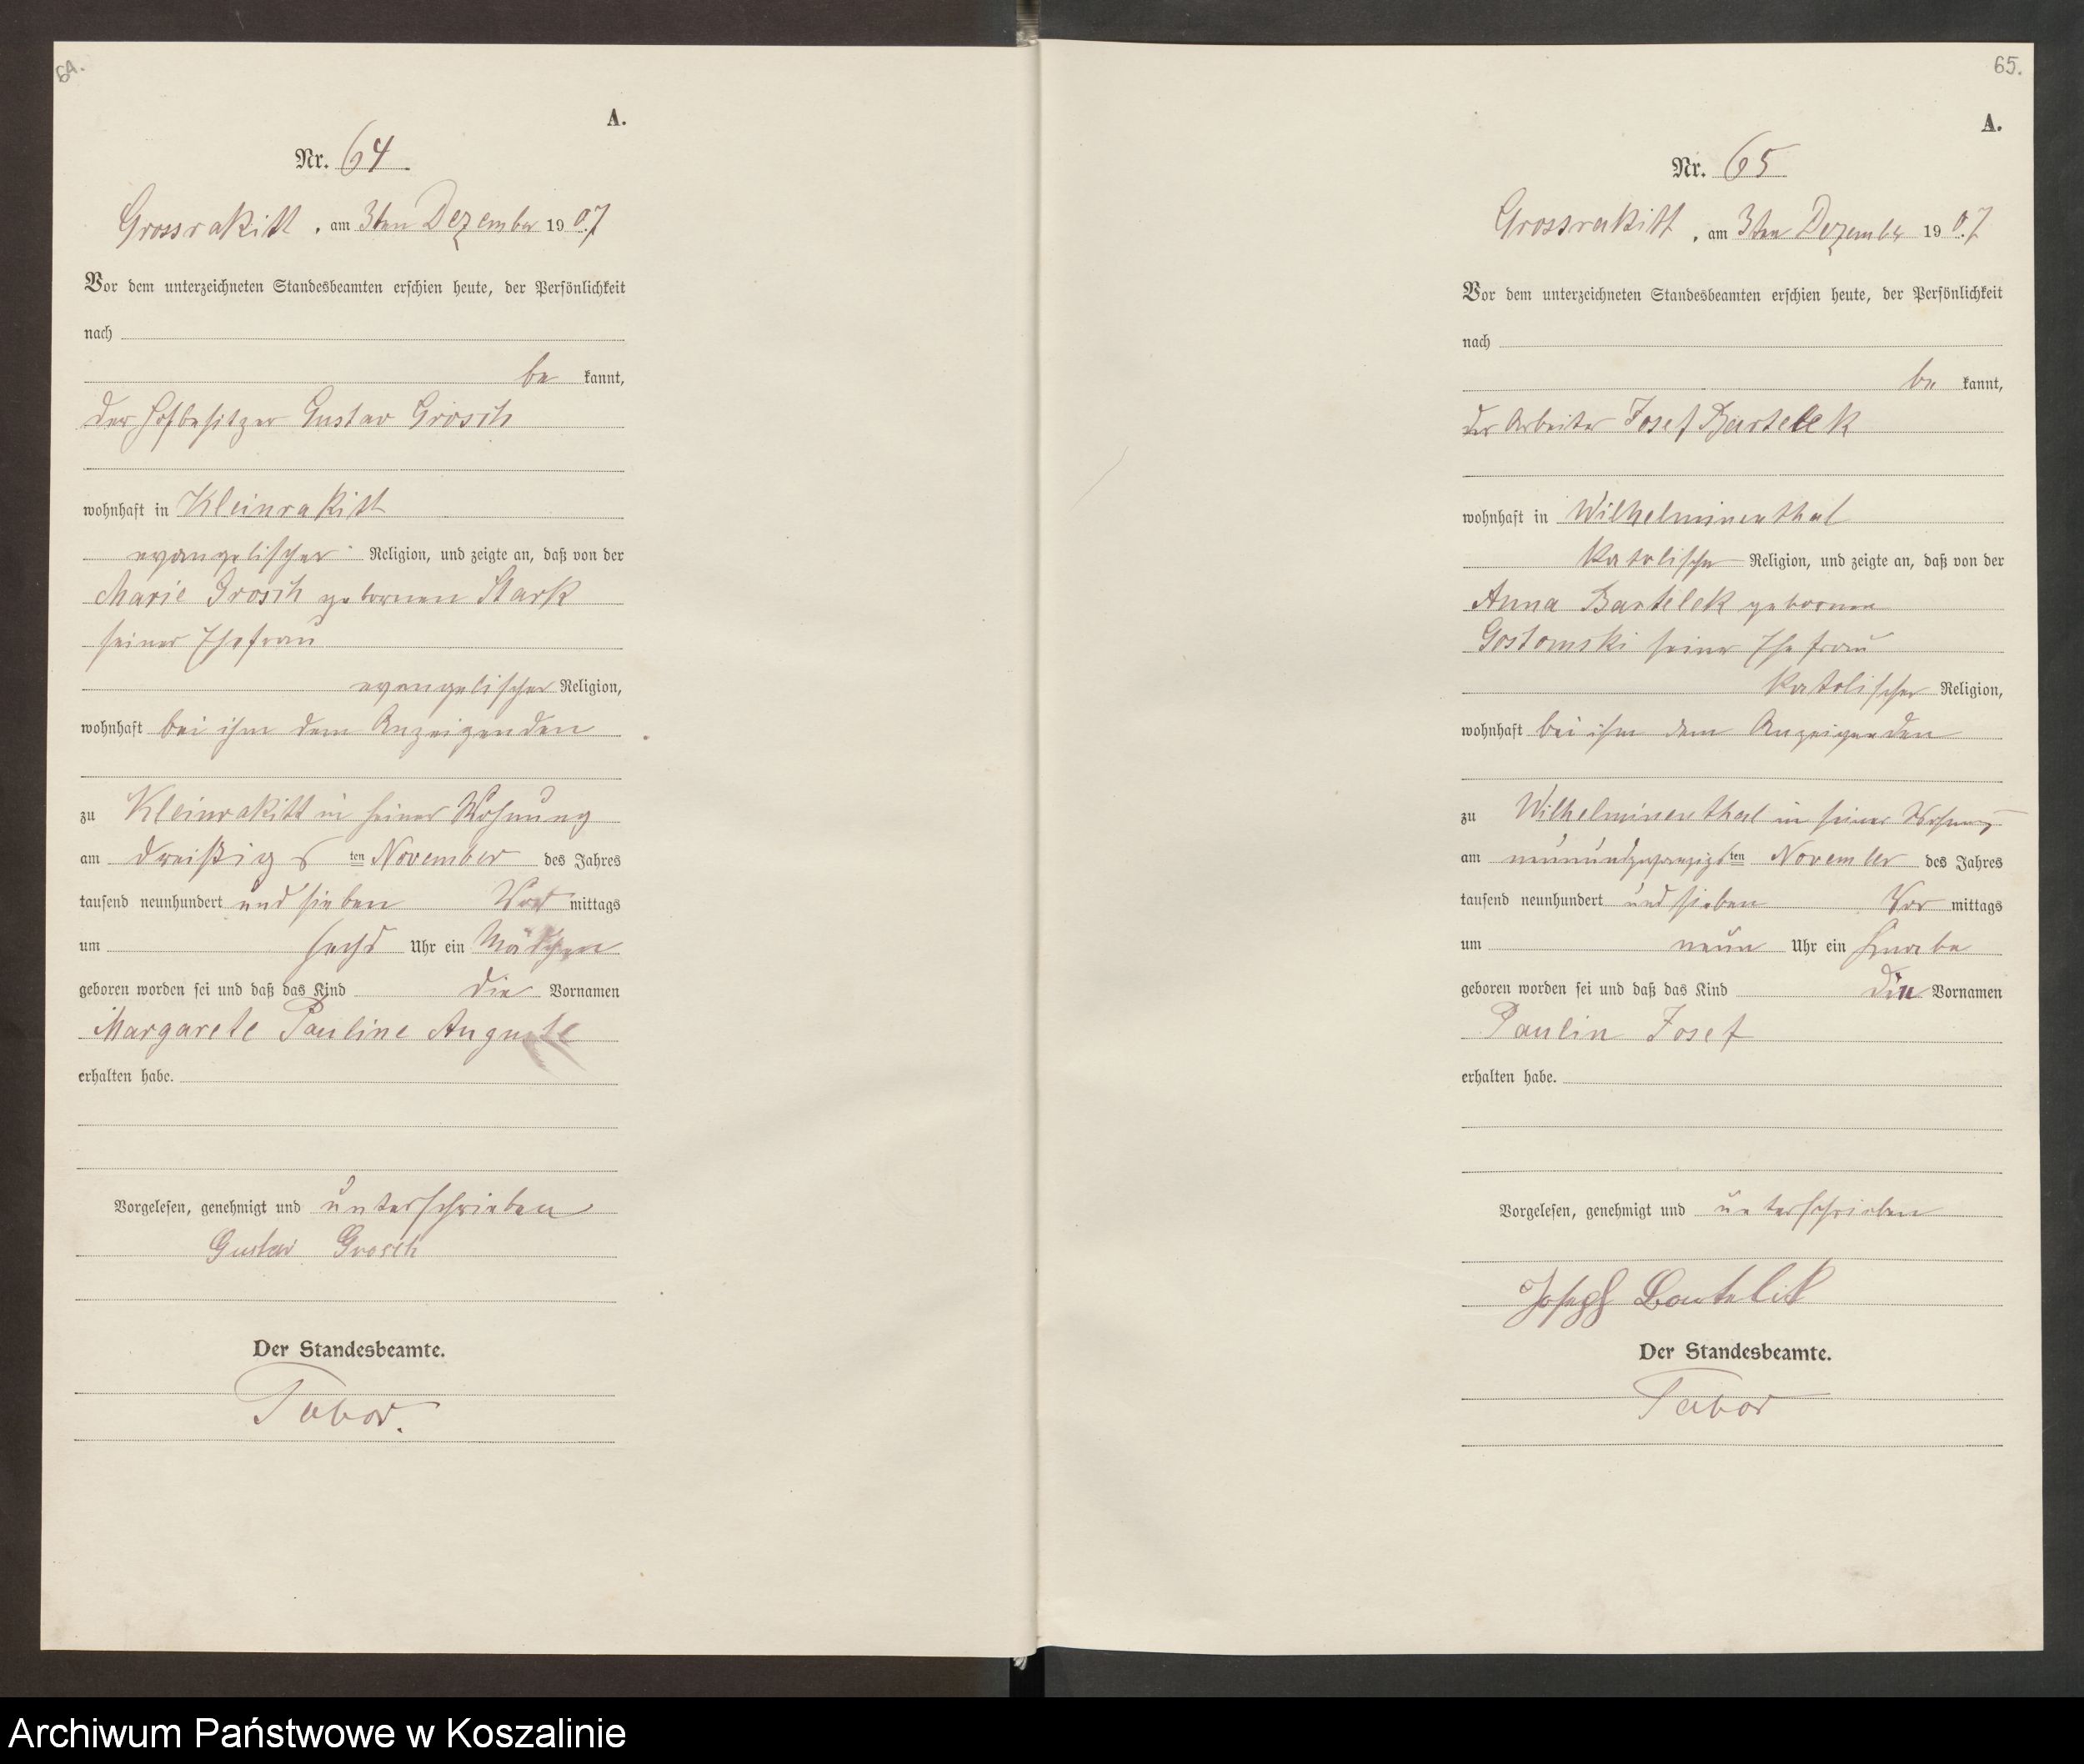 64.
A.
Nr. 64
Grossrakitt, am 3ten Dezember 1907
Vor dem unterzeichneten Standesbeamten erschien heute, der Persönlichkeit
nach
be kannt,
der Hofbesitzer Gustav Grosch
wohnhaft in Kleinrakitt
evangelischer Religion, und zeigte an, daß von der
Marie Grosch gebornen Stark
seiner Ehefrau
evangelischer Religion,
wohnhaft bei ihm dem Anzeigenden
zu Kleinrakitt in seiner Wohnung
am dreißigs ten November des Jahres
tausend neunhundert und sieben Vor mittags
um sechs Uhr ein Mädchen
geboren worden sei und daß das Kind die Vornamen
Margarete Pauline Auguste
erhalten habe.
Vorgelesen, genehmigt und unterschrieben
Gustav Grosch
Der Standesbeamte.
Tabor.
65.
A.
Nr. 65
Grossrakitt, am 3ten Dezember 1907
Vor dem unterzeichneten Standesbeamten erschien heute, der Persönlichkeit
nach
be kannt,
der Arbeiter Josef Bartelek
wohnhaft in Wilhelminenthal
katolischer Religion, und zeigte an, daß von der
Anna Bartelek geborene
Gostomski seiner Ehefrau
katolischer Religion,
wohnhaft bei ihm dem Anzeigenden
zu Wilhelminenthal in seiner Wohnung
am neunundzwanzigs ten November des Jahres
tausend neunhundert und sieben Vor mittags
um neun Uhr ein Knabe
geboren worden sei und daß das Kind die Vornamen
Paulin Josef
erhalten habe.
Vorgelesen, genehmigt und unterschrieben
Joseph Bartelik
Der Standesbeamte.
Tabor
Archiwum Państwowe w Koszalinie